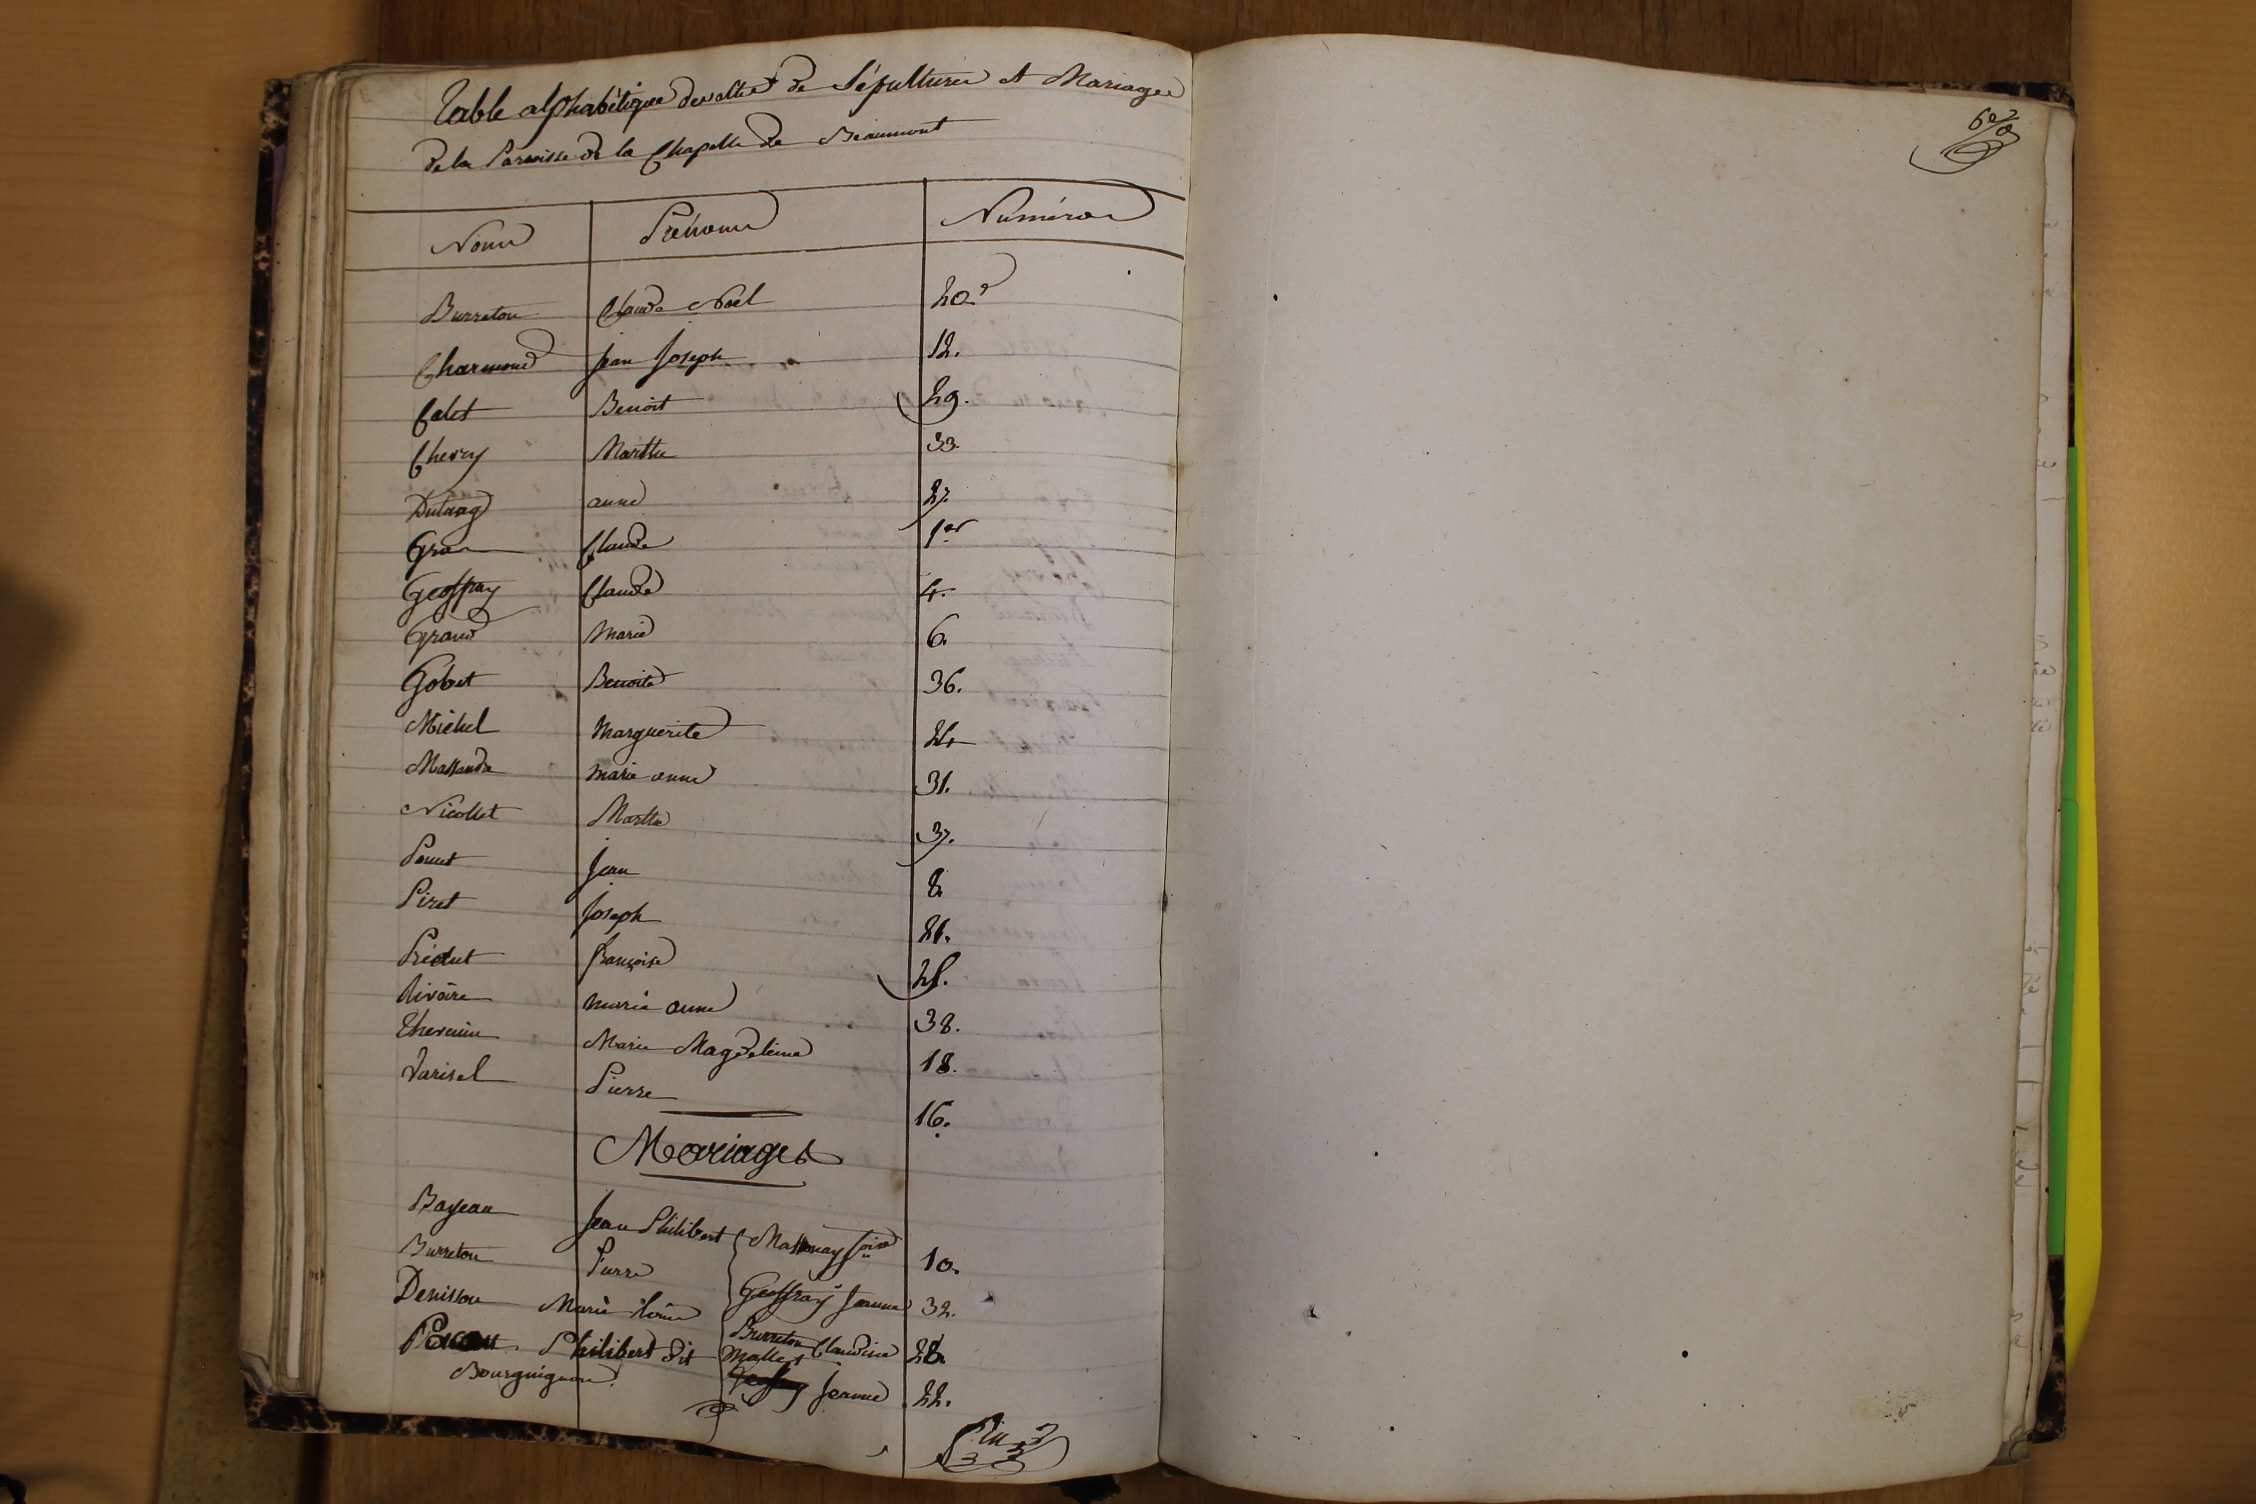 Table alphabétique des actes de Sépultures et Mariages
de la Paroisse de la Chapelle de Beaumont
Noms Prénoms Numéros
Burreton Claude Noël 20
Charmond Jean Joseph 12.
Calet Benoit 29.
Chevry Marthe 33.
Dutang anne 27.
Gras Claude 1er
Geoffray Claude 4.
Grand Marie 6.
Gobet Benoite 36.
Michel Marguerite 24
marie anne 31.
Nicollet Marthe 37.
Ponnet Jean 8.
Piret Joseph 21.
Françoise 25.
Rivoire marie anne 38.
Thevenin Marie Magdeleine 18.
Varisel Pierre 16.
Mariages
Bayeau Jean Philibert 10.
Burreton Pierre Geoffray Jeanne 32.
Denisson Marie Burreton Claudine 28.
Philibert dit Mallet
Bourguignon Jeanne 22.